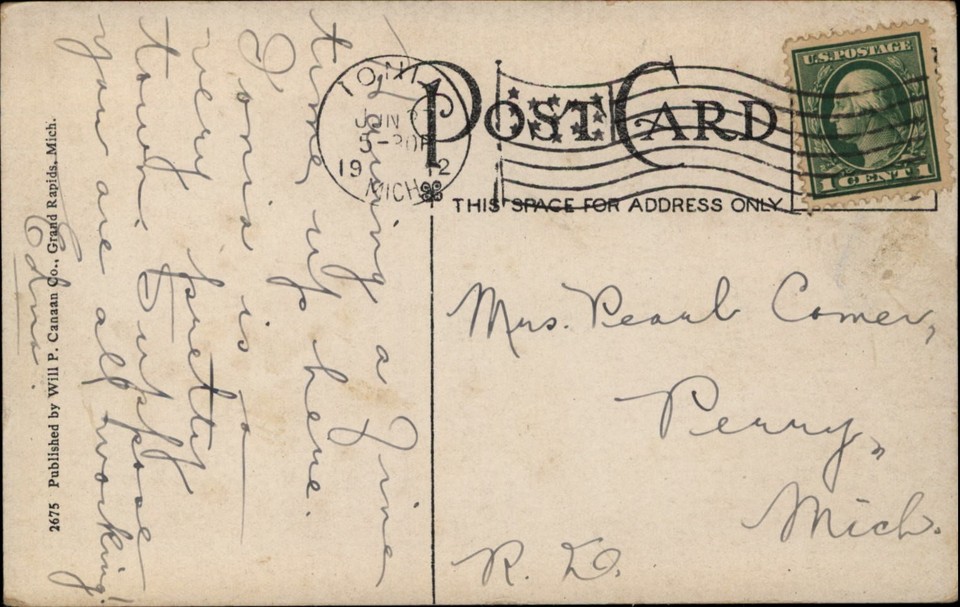 POST CARD
THIS SPACE FOR ADDRESS ONLY
U.S. POSTAGE
1 CENT 1
IONIA
JUN
5-30P
19 2
MICH.
Having a fine
time up here.
Ionia is a
very pretty
town. Suppose
you are all working!
Edna.
Mrs. Pearl Comer,
Perry,
Mich.
R. D.
2675 Published by Will P. Canaan Co., Grand Rapids, Mich.